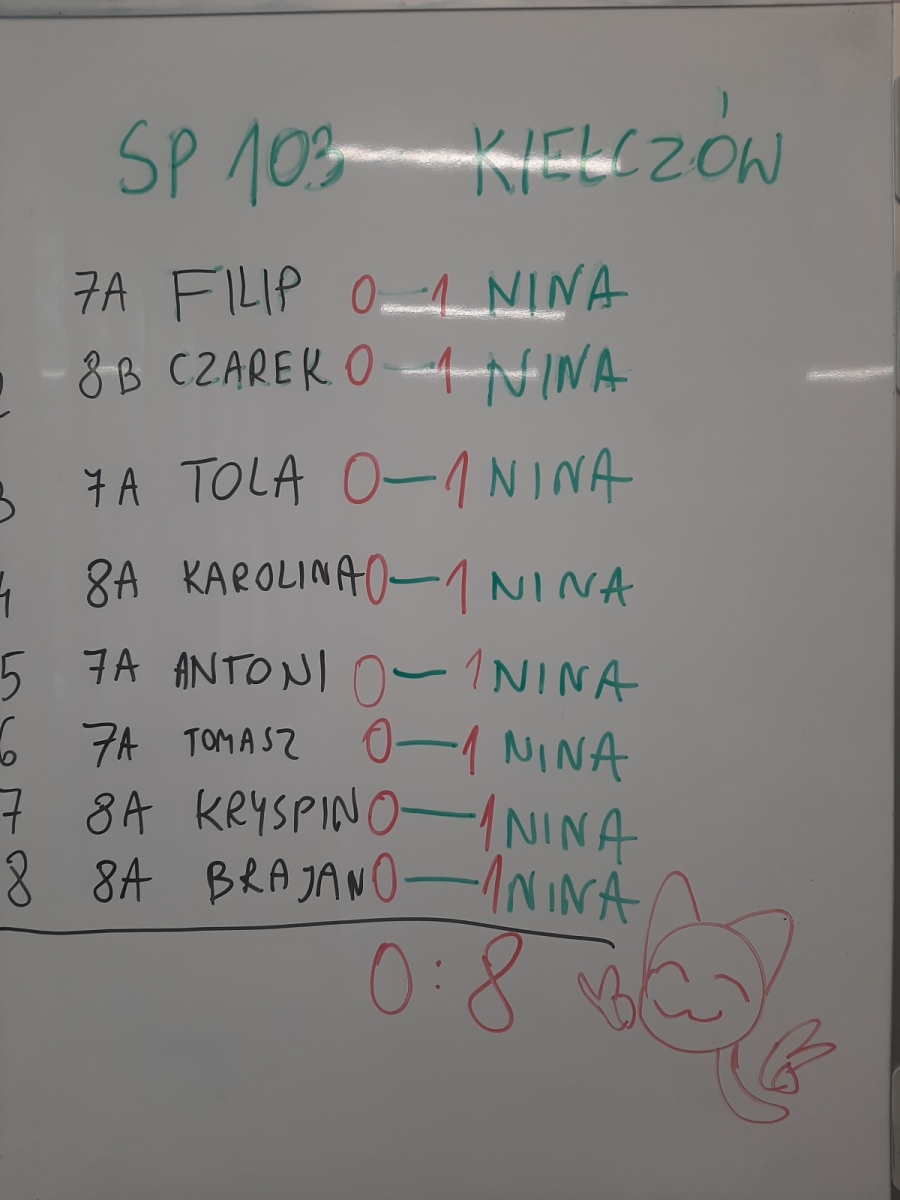 SP 103 KIEŁCZÓW
7A FILIP 0 — 1 NINA
2 8B CZAREK 0 — 1 NINA
3 7A TOLA 0 — 1 NINA
4 8A KAROLINA 0 — 1 NINA
5 7A ANTONI 0 — 1 NINA
6 7A TOMASZ 0 — 1 NINA
7 8A KRYSPIN 0 — 1 NINA
8 8A BRAJAN 0 — 1 NINA
0:8